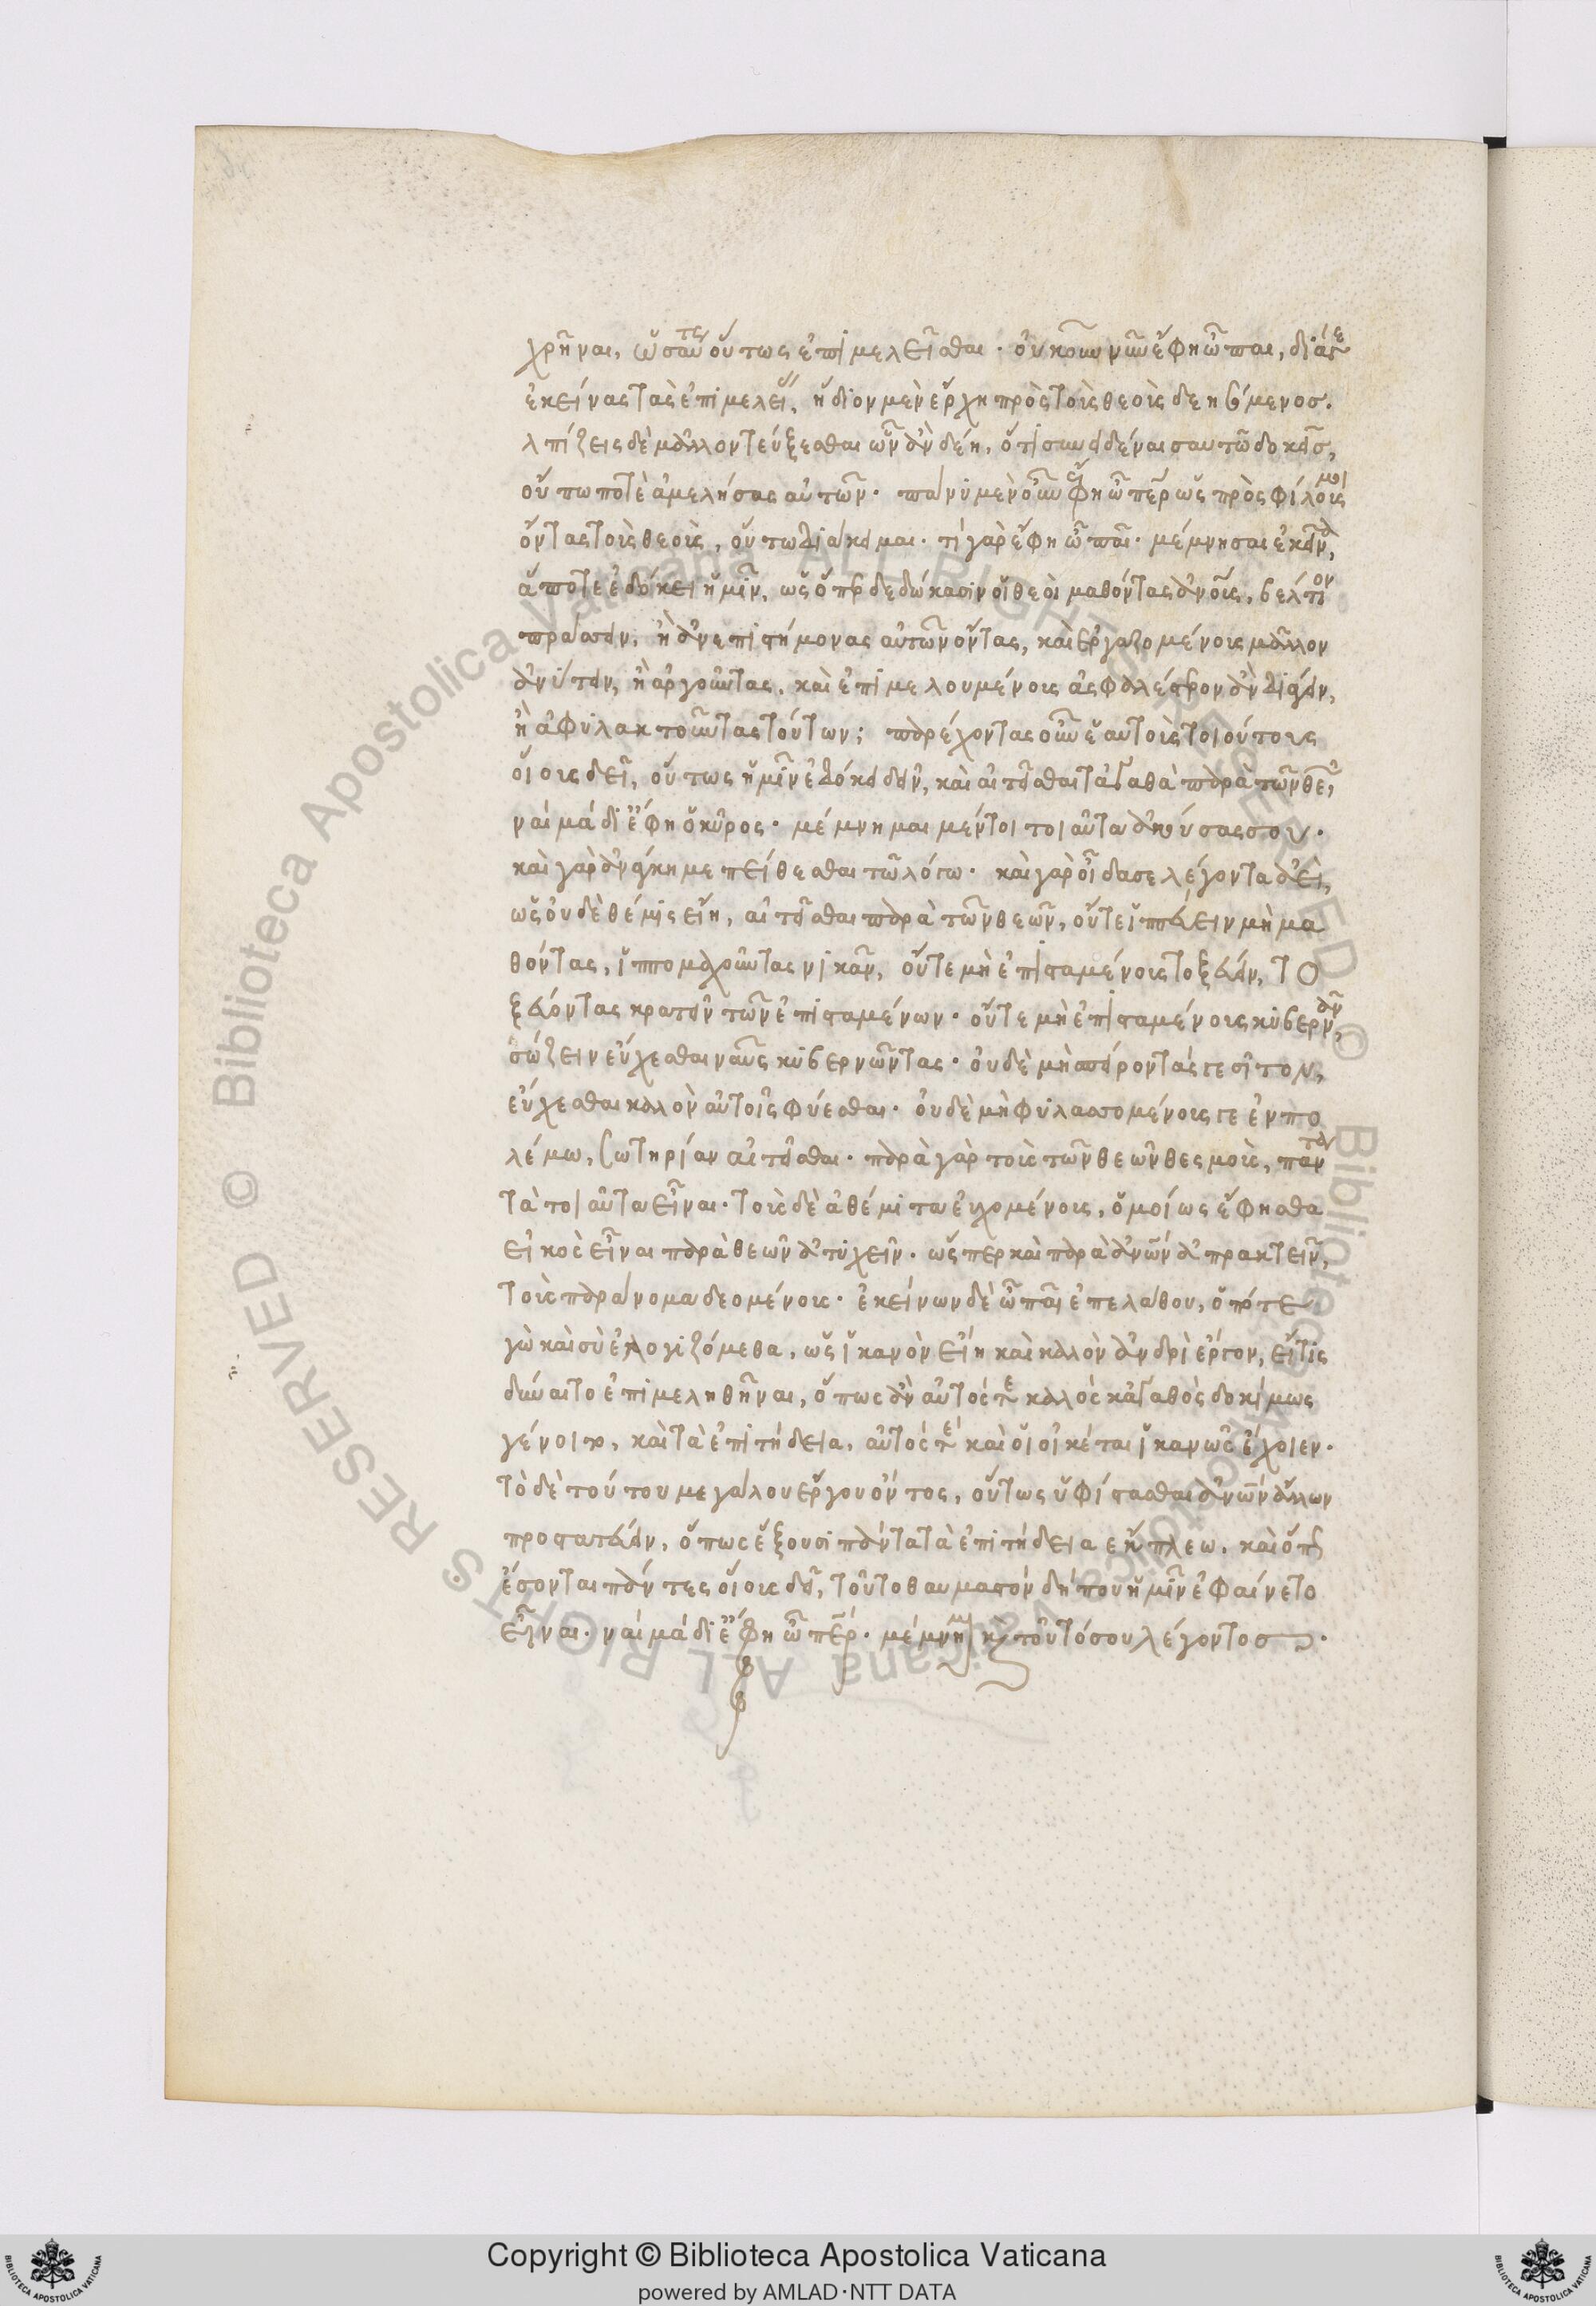 χρῆναι, ὥσταύτε οὕτως ἐπιμελεῖσθαι. οὐκοῦν νῦν ἔφη ὦ παι, διά γε
ἐκείνας τὰς ἐπιμελείας, ἥδιον μὲν ἔρχη πρὸς τοὺς θεοὺς δεησόμενος.
λπίζεις δὲ μᾶλλον τεύξεσθαι ὧν ἂν δέη, ὅτι συνειδέναι σαυτῶ δοκεῖς,
οὔ πω ποτὲ ἀμελήσας αὐτῶν. πάνυ μὲν οὖν ἔφη ὦ πάτερ ὡς πρὸς φίλους μοι
ὄντας τοὺς θεοὺς, οὕτω διάκειμαι. τί γὰρ ἔφη ὦ παῖ. μέμνησαι ἐκεῖνα,
ἅ ποτε ἐδόκει ἡμῖν, ὡς ἅπερ δεδώκασιν οἱ θεοὶ μαθόντας ἀνους, βέλτιον
πράσσειν, ἢ ἀνεπιστήμονας αὐτῶν ὄντας, καὶ ἐργαζομένους μᾶλλον
ἀνύτειν, ἢ ἀργοῦντας. καὶ ἐπιμελουμένους ἀσφαλέστερον ἂν διάγειν,
ἢ ἀφυλακτοῦντας τούτων; παρέχοντας οὖν ἑαυτοὺς τοιούτους
οἵους δεῖ, οὕτως ἡμῖν ἐδόκει δεῖν, καὶ αἰτεῖσθαι τἀγαθὰ παρὰ τῶν θεῶν,
ναί μὰ δί ἔφη ὁ κῦρος. μέμνημαι μέντοι τοιαῦτα ἀκούσας σου.
καὶ γὰρ ἀνάγκη με πείθεσθαι τῶ λόγω. καὶ γὰρ οἶδα σε λέγοντα ἀεὶ,
ὡς οὐδὲ θέμις εἴη, αἰτεῖσθαι παρὰ τῶν θεῶν, οὔτε ἱππεύειν μὴ μα
θόντας, ἱππομαχοῦντας νικᾶν, οὔτε μὴ ἐπισταμένους τοξεύειν, το
ξεύοντας κρατεῖν τῶν ἐπισταμένων. οὔτε μὴ ἐπισταμένους κυβερνᾶν,
σώζειν εὔχεσθαι ναῦς κυβερνῶντας. οὐδὲ μὴ σπείροντάς γε σῖτον,
εὔχεσθαι καλὸν αὐτοῖς φύεσθαι. οὐδὲ μὴ φυλασσομένους γε ἐν πο
λέμω, σωτηρίαν αἰτεῖσθαι. παρὰ γὰρ τοὺς τῶν θεῶν θεσμοὺς, πάντα
τὰ τοιαῦτα εἶναι. τοὺς δὲ ἀθέμιτα εὐχομένους, ὁμοίως ἔφησθα
εἰκὸς εἶναι παρὰ θεῶν ἀτυχεῖν. ὥσπερ καὶ παρὰ ἀνων ἀπρακτεῖν,
τοὺς παράνομα δεομένους. ἐκείνων δὲ ὦ παῖ ἐπελάθου, ὅποτε
γὼ καὶ σὺ ἐλογιζόμεθα, ὡς ἱκανὸν εἴη καὶ καλὸν ἀνδρὶ ἔργον, εἴ τις
δύναιτο ἐπιμεληθῆναι, ὅπως ἂν αὐτός τε καλὸς κἀγαθὸς δοκίμως
γένοιτο, καὶ τὰ ἐπιτήδεια, αὐτός τε καὶ οἱ οἰκέται ἱκανῶς ἔχοιεν.
τὸ δὲ τούτου μεγάλου ἔργου ὄντος, οὕτως ὑφίστασθαι ἀνων ἄλλων
προστατεύειν, ὅπως ἕξουσι πάντα τὰ ἐπιτήδεια ἔκπλεω. καὶ ὅπως
ἔσονται πάντες οἵους δεῖ, τοῦτο θαυμαστόν δήπου ἡμῖν ἐφαίνετο
εἶναι. ναί μὰ δί ἔφη ὦ πάτερ. μέμνημαι καὶ τοῦτό σου λέγοντος.
Copyright © Biblioteca Apostolica Vaticana
powered by AMLAD·NTT DATA